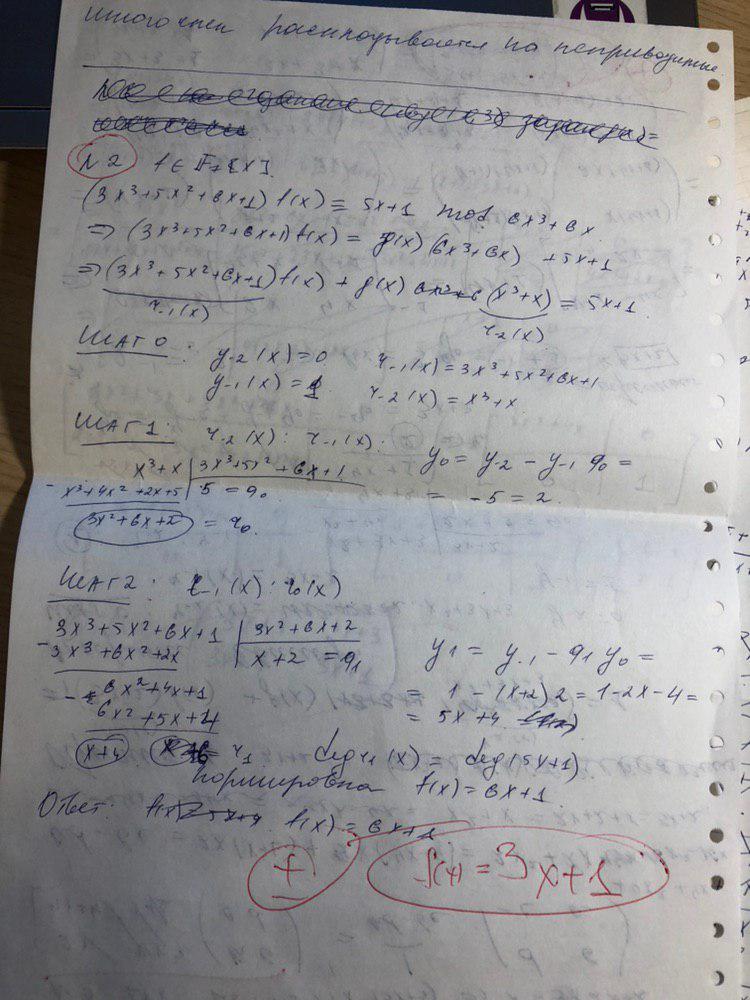 многочлен раскладывается на неприводимые.
№2 f ∈ F₇[x].
(3x³+5x²+6x+1) f(x) ≡ 5x+1 mod 6x³+6x
⇒ (3x³+5x²+6x+1) f(x) = g(x) (6x³+6x) + 5x+1
⇒ (3x³+5x²+6x+1) f(x) + g(x) (x³+x) = 5x+1
r₋₁(x) r₋₂(x)
ШАГ 0: y₋₂(x) = 0 r₋₁(x) = 3x³+5x²+6x+1
y₋₁(x) = 1 r₋₂(x) = x³+x
ШАГ 1: r₋₂(x) : r₋₁(x):
x³+x | 3x³+5x²+6x+1 y₀ = y₋₂ − y₋₁ q₀ =
- x³+4x²+2x+5 | 5 = q₀ = -5 = 2.
3x²+6x+2 = r₀
ШАГ 2: r₋₁(x) : r₀(x)
3x³+5x²+6x+1 | 3x²+6x+2
- 3x³+6x²+2x | x+2 = q₁ y₁ = y₋₁ − q₁ y₀ =
- 6x²+4x+1 = 1 − (x+2) 2 = 1−2x−4 =
6x²+5x+4 = 5x+4
x+4 = r₁ deg r₁(x) = deg(5x+1)
нормировка f(x) = 6x+1
Ответ: f(x) = 6x+1
± f(x) = 3x+1